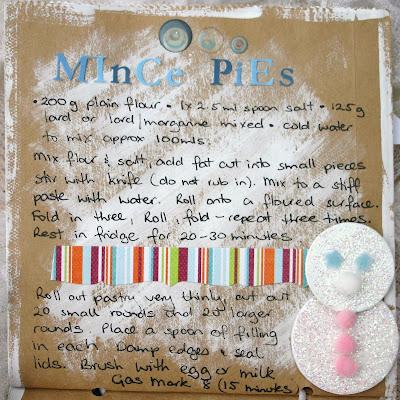 MInCe PiEs
• 200g plain flour • 1x 2.5ml spoon salt • 125g
lard or lard/margarine mixed • cold water
to mix approx 100mls.
Mix flour & salt, add fat cut into small pieces
stir with knife (do not rub in). Mix to a stiff
paste with water. Roll onto a floured surface.
Fold in three, Roll, fold - repeat three times.
Rest in fridge for 20-30 minutes.
Roll out pastry very thinly, cut out
20 small rounds and 20 larger
rounds. Place a spoon of filling
in each. Damp edges & seal
lids. Brush with egg or milk
Gas Mark 8 (15 minutes)